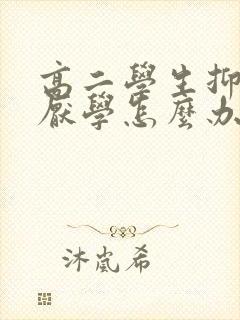 高二學生抑
厭學怎麼办
沐嵐希